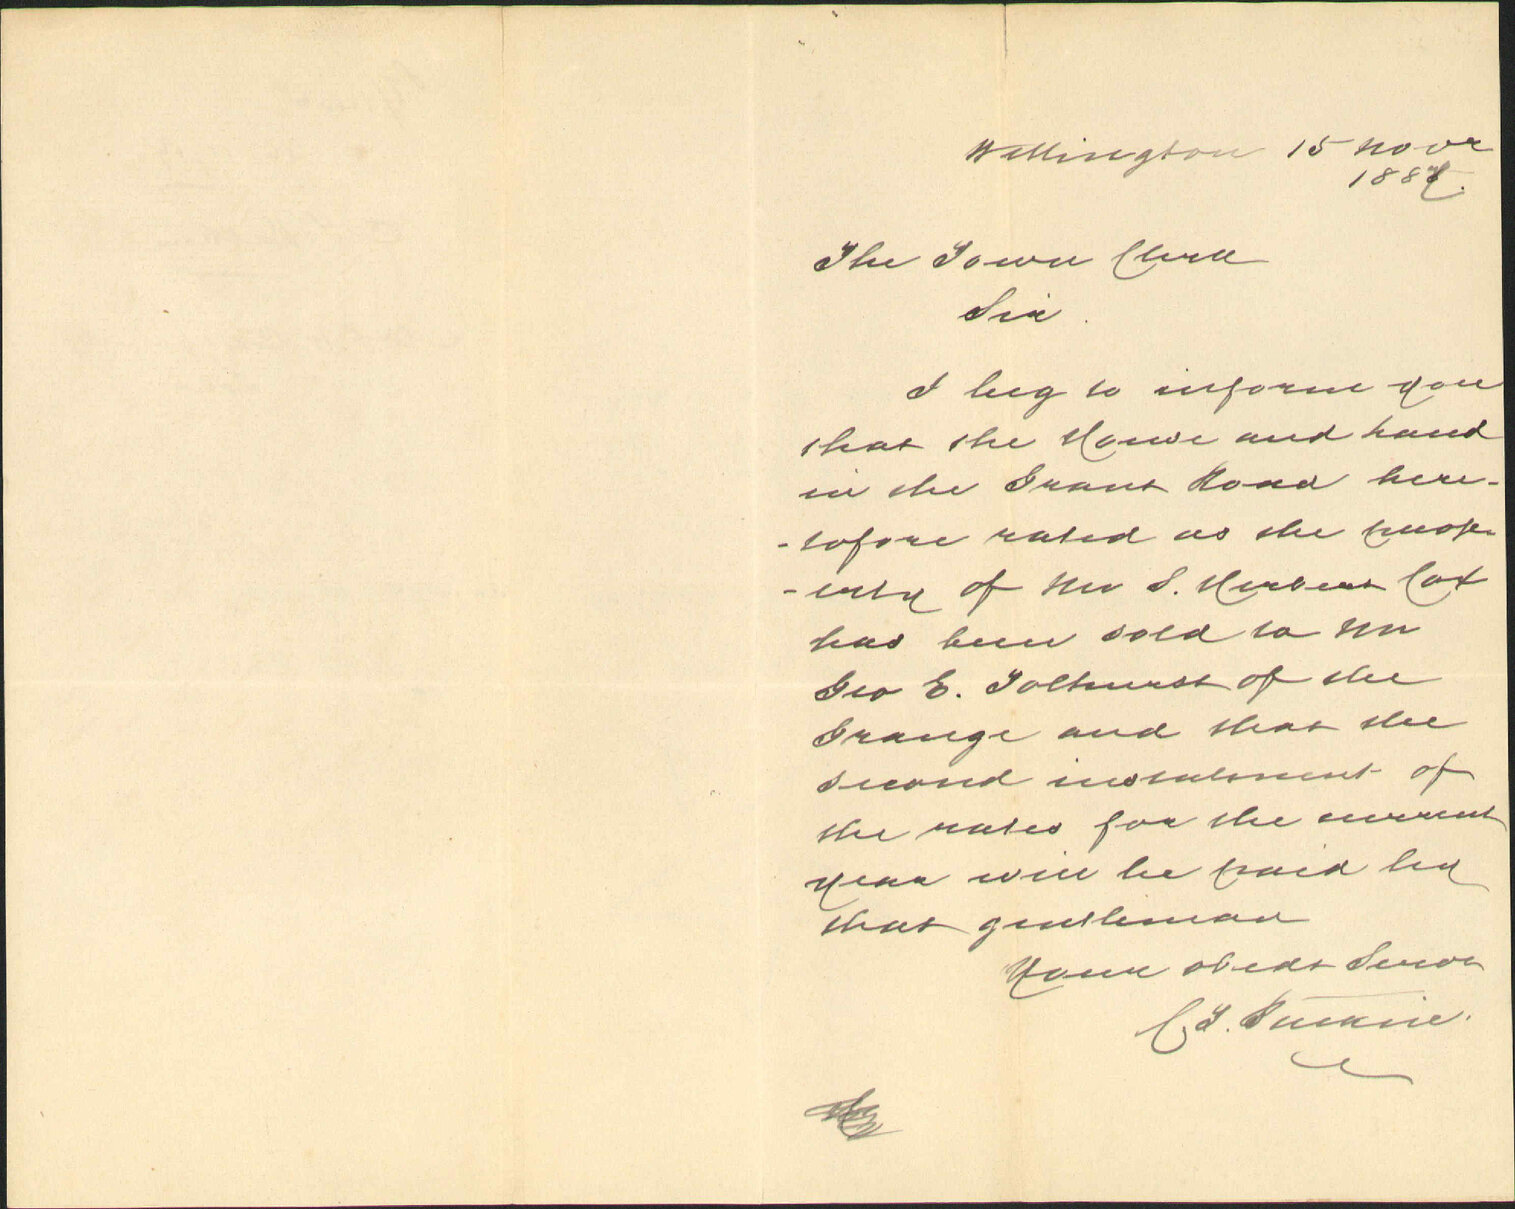 Wellington 15 Novr
188
The Town Clerk
Sir.
I beg to inform you
that the House and Land
in the Grant Road here-
-tofore rated as the prop-
-erty of Mr S. Herbert Cox
has been sold to Mr
Geo E. Tolhurst of the
Grange and that the
second instalment of
the rates for the current
year will be paid by
that gentleman
Your obedt Servt
C. T.